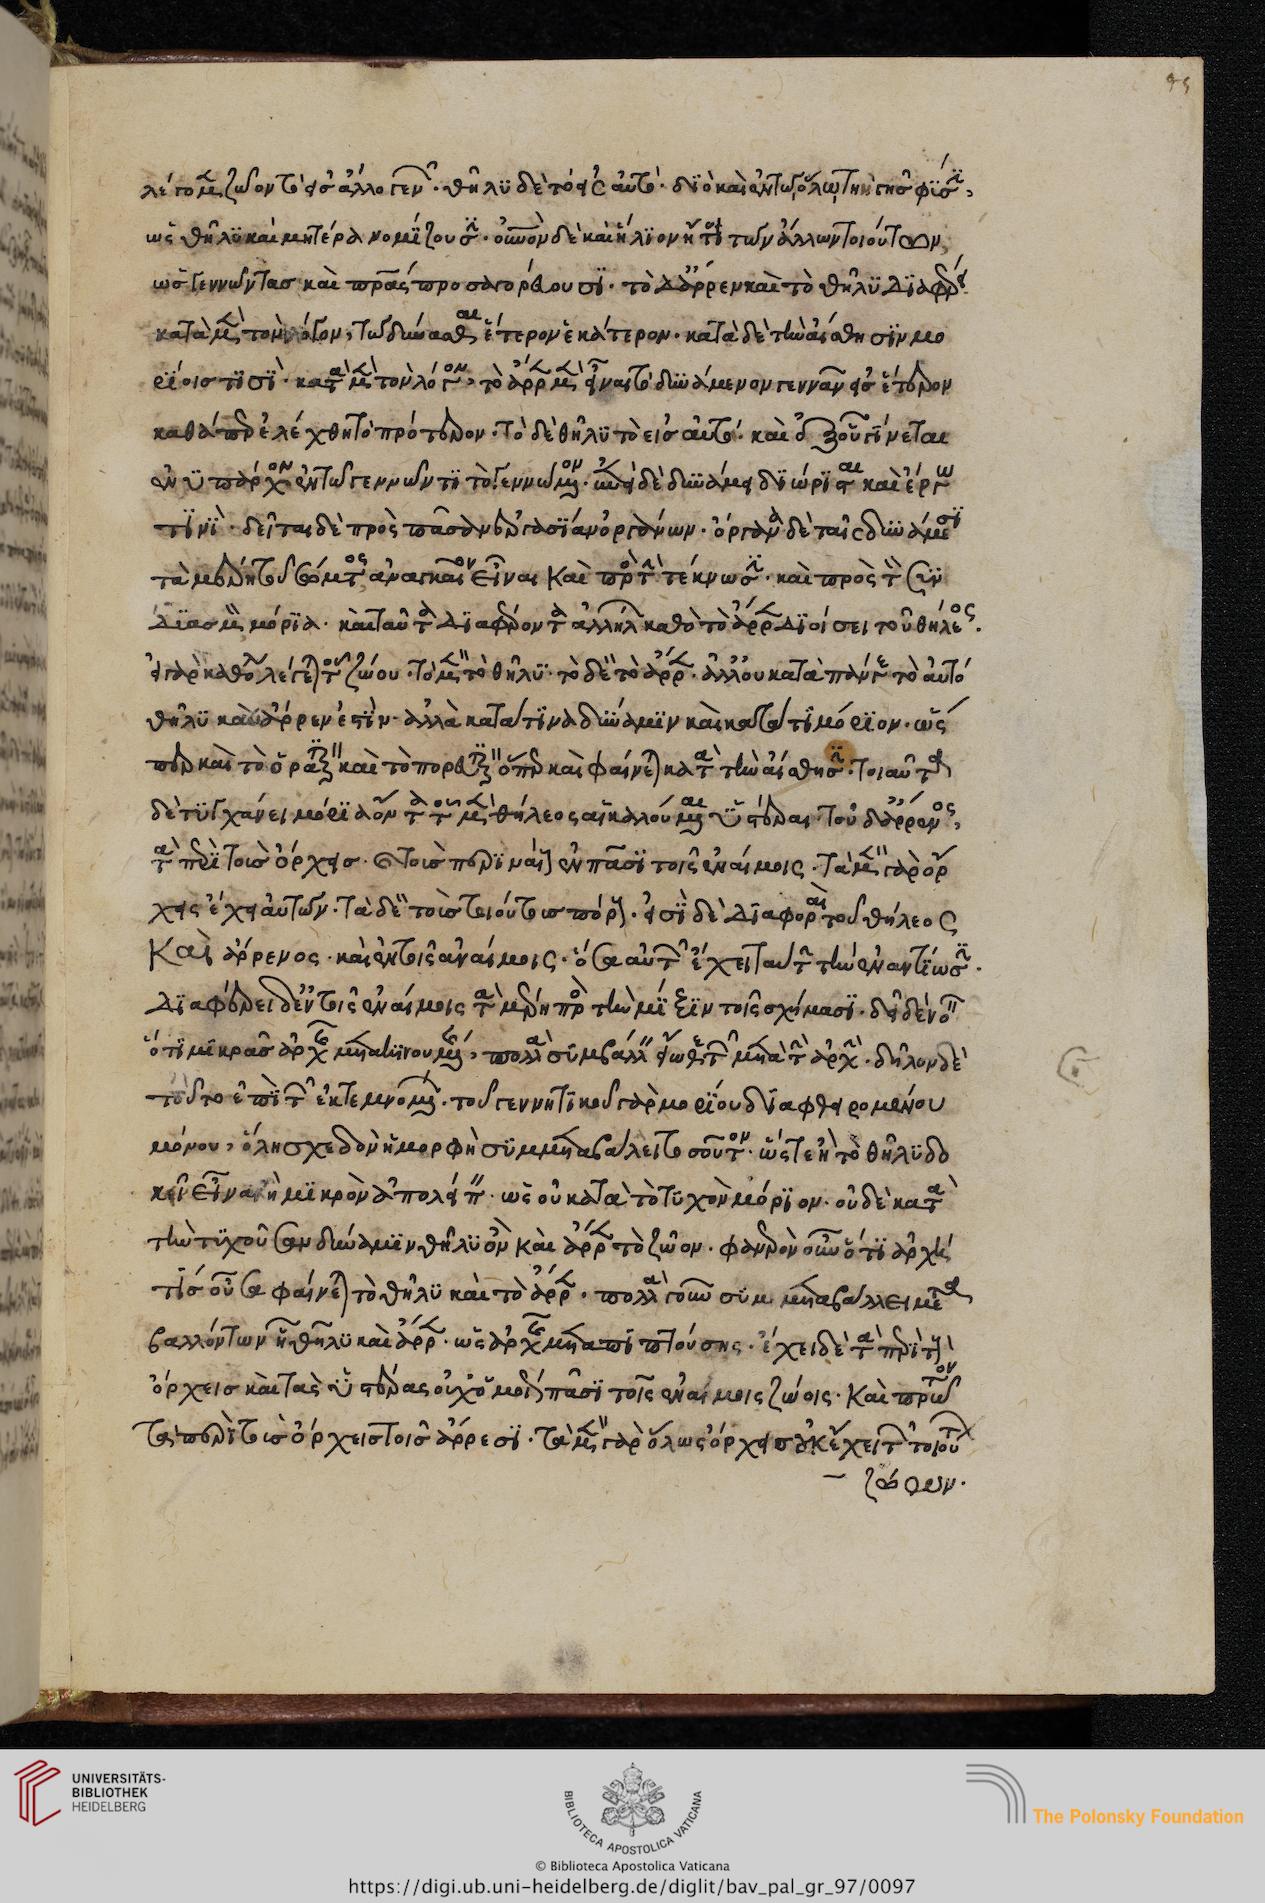 λέγομεν ζῶον τὸ εἰς ἄλλο γεννῶν· θῆλυ δὲ τὸ εἰς αὐτό· διὸ καὶ ἐν τῷ ὅλῳ τὴν τῆς γῆς φύσιν,
ὡς θῆλυ καὶ μητέρα νομίζουσιν· οὐρανὸν δὲ καὶ ἥλιον ἤ τι τῶν ἄλλων τοιούτων
ὡς γεννῶντας καὶ πατέρας προσαγορεύουσι· τὸ δ' ἄρρεν καὶ τὸ θῆλυ διαφέρει
κατὰ μὲν τὸν λόγον, τῷ δύνασθαι ἕτερον ἑκάτερον· κατὰ δὲ τὴν αἴσθησιν μο
ρίοις τισί· κατὰ μὲν τὸν λόγον, τὸ ἄρρεν μὲν εἶναι τὸ δυνάμενον γεννᾶν εἰς ἕτερον
καθάπερ ἐλέχθη τὸ πρότερον· τὸ δὲ θῆλυ τὸ εἰς αὐτό· καὶ ἐξ οὗ γίνεται
ἐνυπάρχον ἐν τῷ γεννῶντι τὸ γεννώμενον· ἐπεὶ δὲ δυνάμει διώρισται καὶ ἔργῳ
τινί· δεῖται δὲ πρὸς πᾶσαν ἐργασίαν ὀργάνων· ὄργανα δὲ ταῖς δυνάμεσι
τὰ μέρη τοῦ σώματος ἀναγκαῖον εἶναι καὶ πρὸς τὴν τέκνωσιν· καὶ πρὸς τὸν συν
δυασμὸν μόρια· καὶ ταῦτα διαφέροντα ἀλλήλων καθὸ τὸ ἄρρεν διοίσει τοῦ θήλεος.
εἰ γὰρ καθόλου λέγεται τοῦ ζώου· τὸ μὲν τὸ θῆλυ· τὸ δὲ τὸ ἄρρεν· ἀλλ' οὐ κατὰ πάν γε τὸ αὐτό
θῆλυ καὶ ἄρρεν ἐστίν· ἀλλὰ κατά τινα δύναμιν καὶ κατά τι μόριον· ὥς
περ καὶ τὸ ὁρατικὸν καὶ τὸ πορευτικόν ὅπερ καὶ φαίνεται κατὰ τὴν αἴσθησιν· τοιαῦτα
δὲ τυγχάνει μόρια ὄντα τοῦ μὲν θήλεος αἱ καλούμεναι ὑστέραι· τοῦ δ' ἄρρενος,
τὰ περὶ τοὺς ὄρχεις καὶ τοὺς περινέους ἐν πᾶσι τοῖς ἐναίμοις· τὰ μὲν γὰρ ὄρ
χεις ἔχει αὐτῶν· τὰ δὲ τοὺς τοιούτους πόρους· εἰσὶ δὲ διαφοραὶ τοῦ θήλεος
καὶ ἄρρενος· καὶ ἐν τοῖς ἀναίμοις· ὅσα αὐτῶν ἔχει ταύτην τὴν ἐναντίωσιν.
διαφέρει δ' ἐν τοῖς ἐναίμοις τὰ μέρη πρὸς τὴν μῖξιν τοῖς σχήμασι· δεῖ δὲ νοεῖν
ὅτι μικρᾶς ἀρχῆς μετακινουμένης, πολλὰ συμβάλλειν εἴωθε τῶν μετὰ τὴν ἀρχήν· δῆλον δὲ
τοῦτο ἐπὶ τῶν ἐκτεμνομένων· τοῦ γεννητικοῦ γὰρ μορίου διαφθειρομένου
μόνου, ὅλη σχεδὸν ἡ μορφὴ συμμεταβάλλει τοσοῦτον· ὥστε ἢ τὸ θῆλυ δο
κεῖν εἶναι ἢ μικρὸν ἀπολείπειν· ὡς οὐ κατὰ τὸ τυχὸν μόριον· οὐδὲ κατὰ
τὴν τυχοῦσαν δύναμιν θῆλυ ὂν καὶ ἄρρεν τὸ ζῶον· φανερὸν οὖν ὅτι ἀρχή
τις οὖσα φαίνεται τὸ θῆλυ καὶ τὸ ἄρρεν· πολλὰ γοῦν συμμεταβάλλει μετα
βαλλόντων ᾗ θῆλυ καὶ ἄρρεν· ὡς ἀρχῆς μεταπιπτούσης· ἔχει δὲ τὰ περὶ τοὺς
ὄρχεις καὶ τὰς ὑστέρας οὐχ ὁμοίως πᾶσι τοῖς ἐναίμοις ζώοις· καὶ πρῶτον
τὰ περὶ τοὺς ὄρχεις τοῖς ἄρρεσι· τὰ μὲν γὰρ ὅλως ὄρχεις οὐκ ἔχει τῶν τοιούτων
ζῴων.